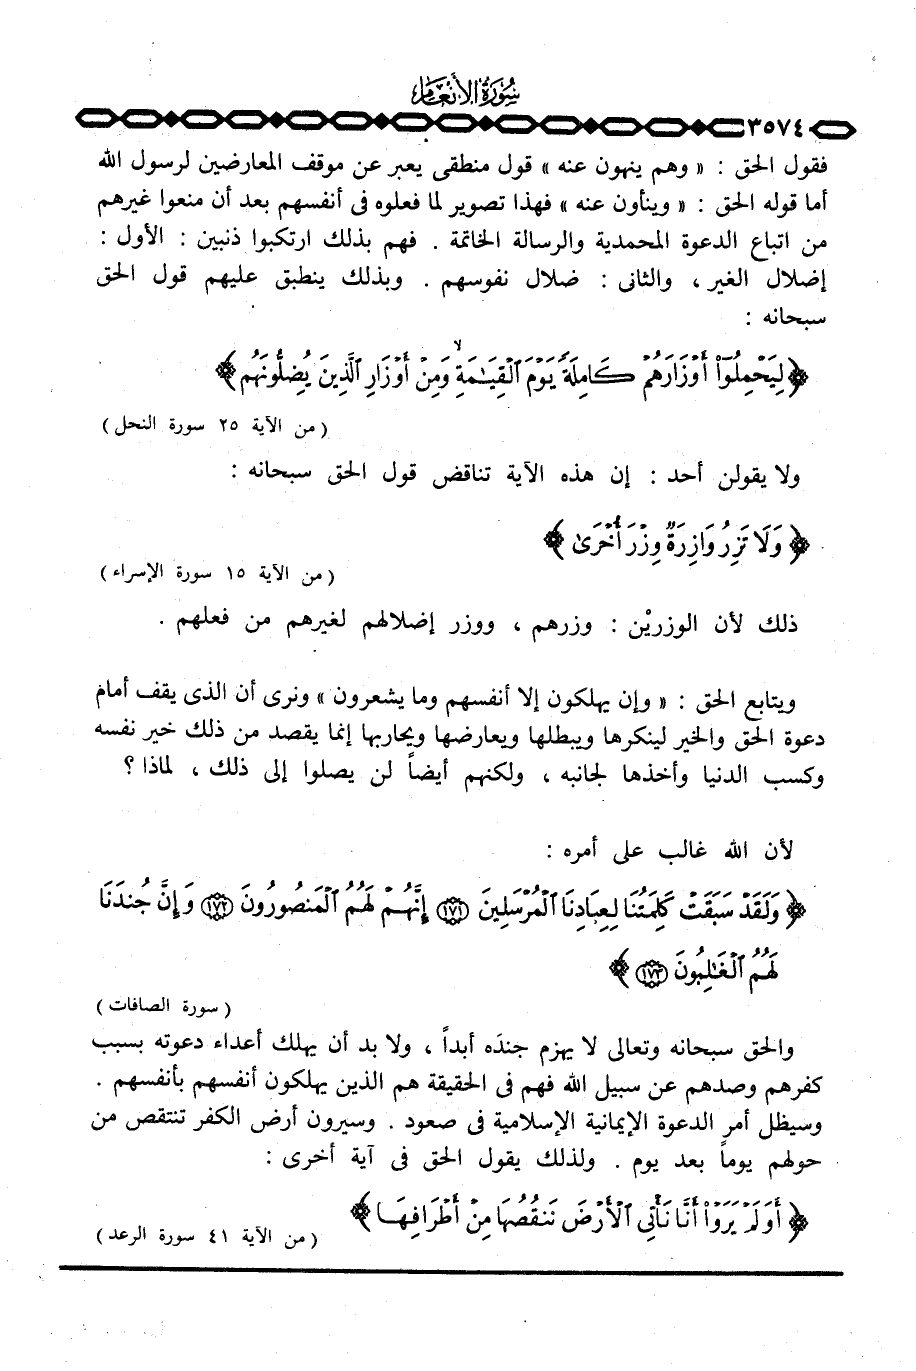 سورة الأنعام
٣٥٧٤
فقول الحق : « وهم ينهون عنه » قول منطقى يعبر عن موقف المعارضين لرسول الله
أما قوله الحق : « وينأون عنه » فهذا تصوير لما فعلوه فى أنفسهم بعد أن منعوا غيرهم
من اتباع الدعوة المحمدية والرسالة الخاتمة . فهم بذلك ارتكبوا ذنبين : الأول :
إضلال الغير ، والثانى : ضلال نفوسهم . وبذلك ينطبق عليهم قول الحق
سبحانه :
﴿ لِيَحْمِلُوٓا۟ أَوْزَارَهُمْ كَامِلَةً يَوْمَ ٱلْقِيَـٰمَةِ ۙ وَمِنْ أَوْزَارِ ٱلَّذِينَ يُضِلُّونَهُم ﴾
( من الآية ٢٥ سورة النحل )
ولا يقولن أحد : إن هذه الآية تناقض قول الحق سبحانه :
﴿ وَلَا تَزِرُ وَازِرَةٌ وِزْرَ أُخْرَىٰ ﴾
( من الآية ١٥ سورة الإسراء )
ذلك لأن الوزريْن : وزرهم ، ووزر إضلالهم لغيرهم من فعلهم .
ويتابع الحق : « وإن يهلكون إلا أنفسهم وما يشعرون » ونرى أن الذى يقف أمام
دعوة الحق والخير لينكرها ويبطلها ويعارضها ويحاربها إنما يقصد من ذلك خير نفسه
وكسب الدنيا وأخذها لجانبه ، ولكنهم أيضاً لن يصلوا إلى ذلك ، لماذا ؟
لأن الله غالب على أمره :
﴿ وَلَقَدْ سَبَقَتْ كَلِمَتُنَا لِعِبَادِنَا ٱلْمُرْسَلِينَ ١٧١ إِنَّهُمْ لَهُمُ ٱلْمَنصُورُونَ ١٧٢ وَإِنَّ جُندَنَا
لَهُمُ ٱلْغَـٰلِبُونَ ١٧٣ ﴾
( سورة الصافات )
والحق سبحانه وتعالى لا يهزم جندَه أبداً ، ولا بد أن يهلك أعداء دعوته بسبب
كفرهم وصدهم عن سبيل الله فهم فى الحقيقة هم الذين يهلكون أنفسهم بأنفسهم .
وسيظل أمر الدعوة الإيمانية الإسلامية فى صعود . وسيرون أرض الكفر تنتقص من
حولهم يوماً بعد يوم . ولذلك يقول الحق فى آية أخرى :
﴿ أَوَلَمْ يَرَوْا۟ أَنَّا نَأْتِى ٱلْأَرْضَ نَنقُصُهَا مِنْ أَطْرَافِهَا ﴾
( من الآية ٤١ سورة الرعد )